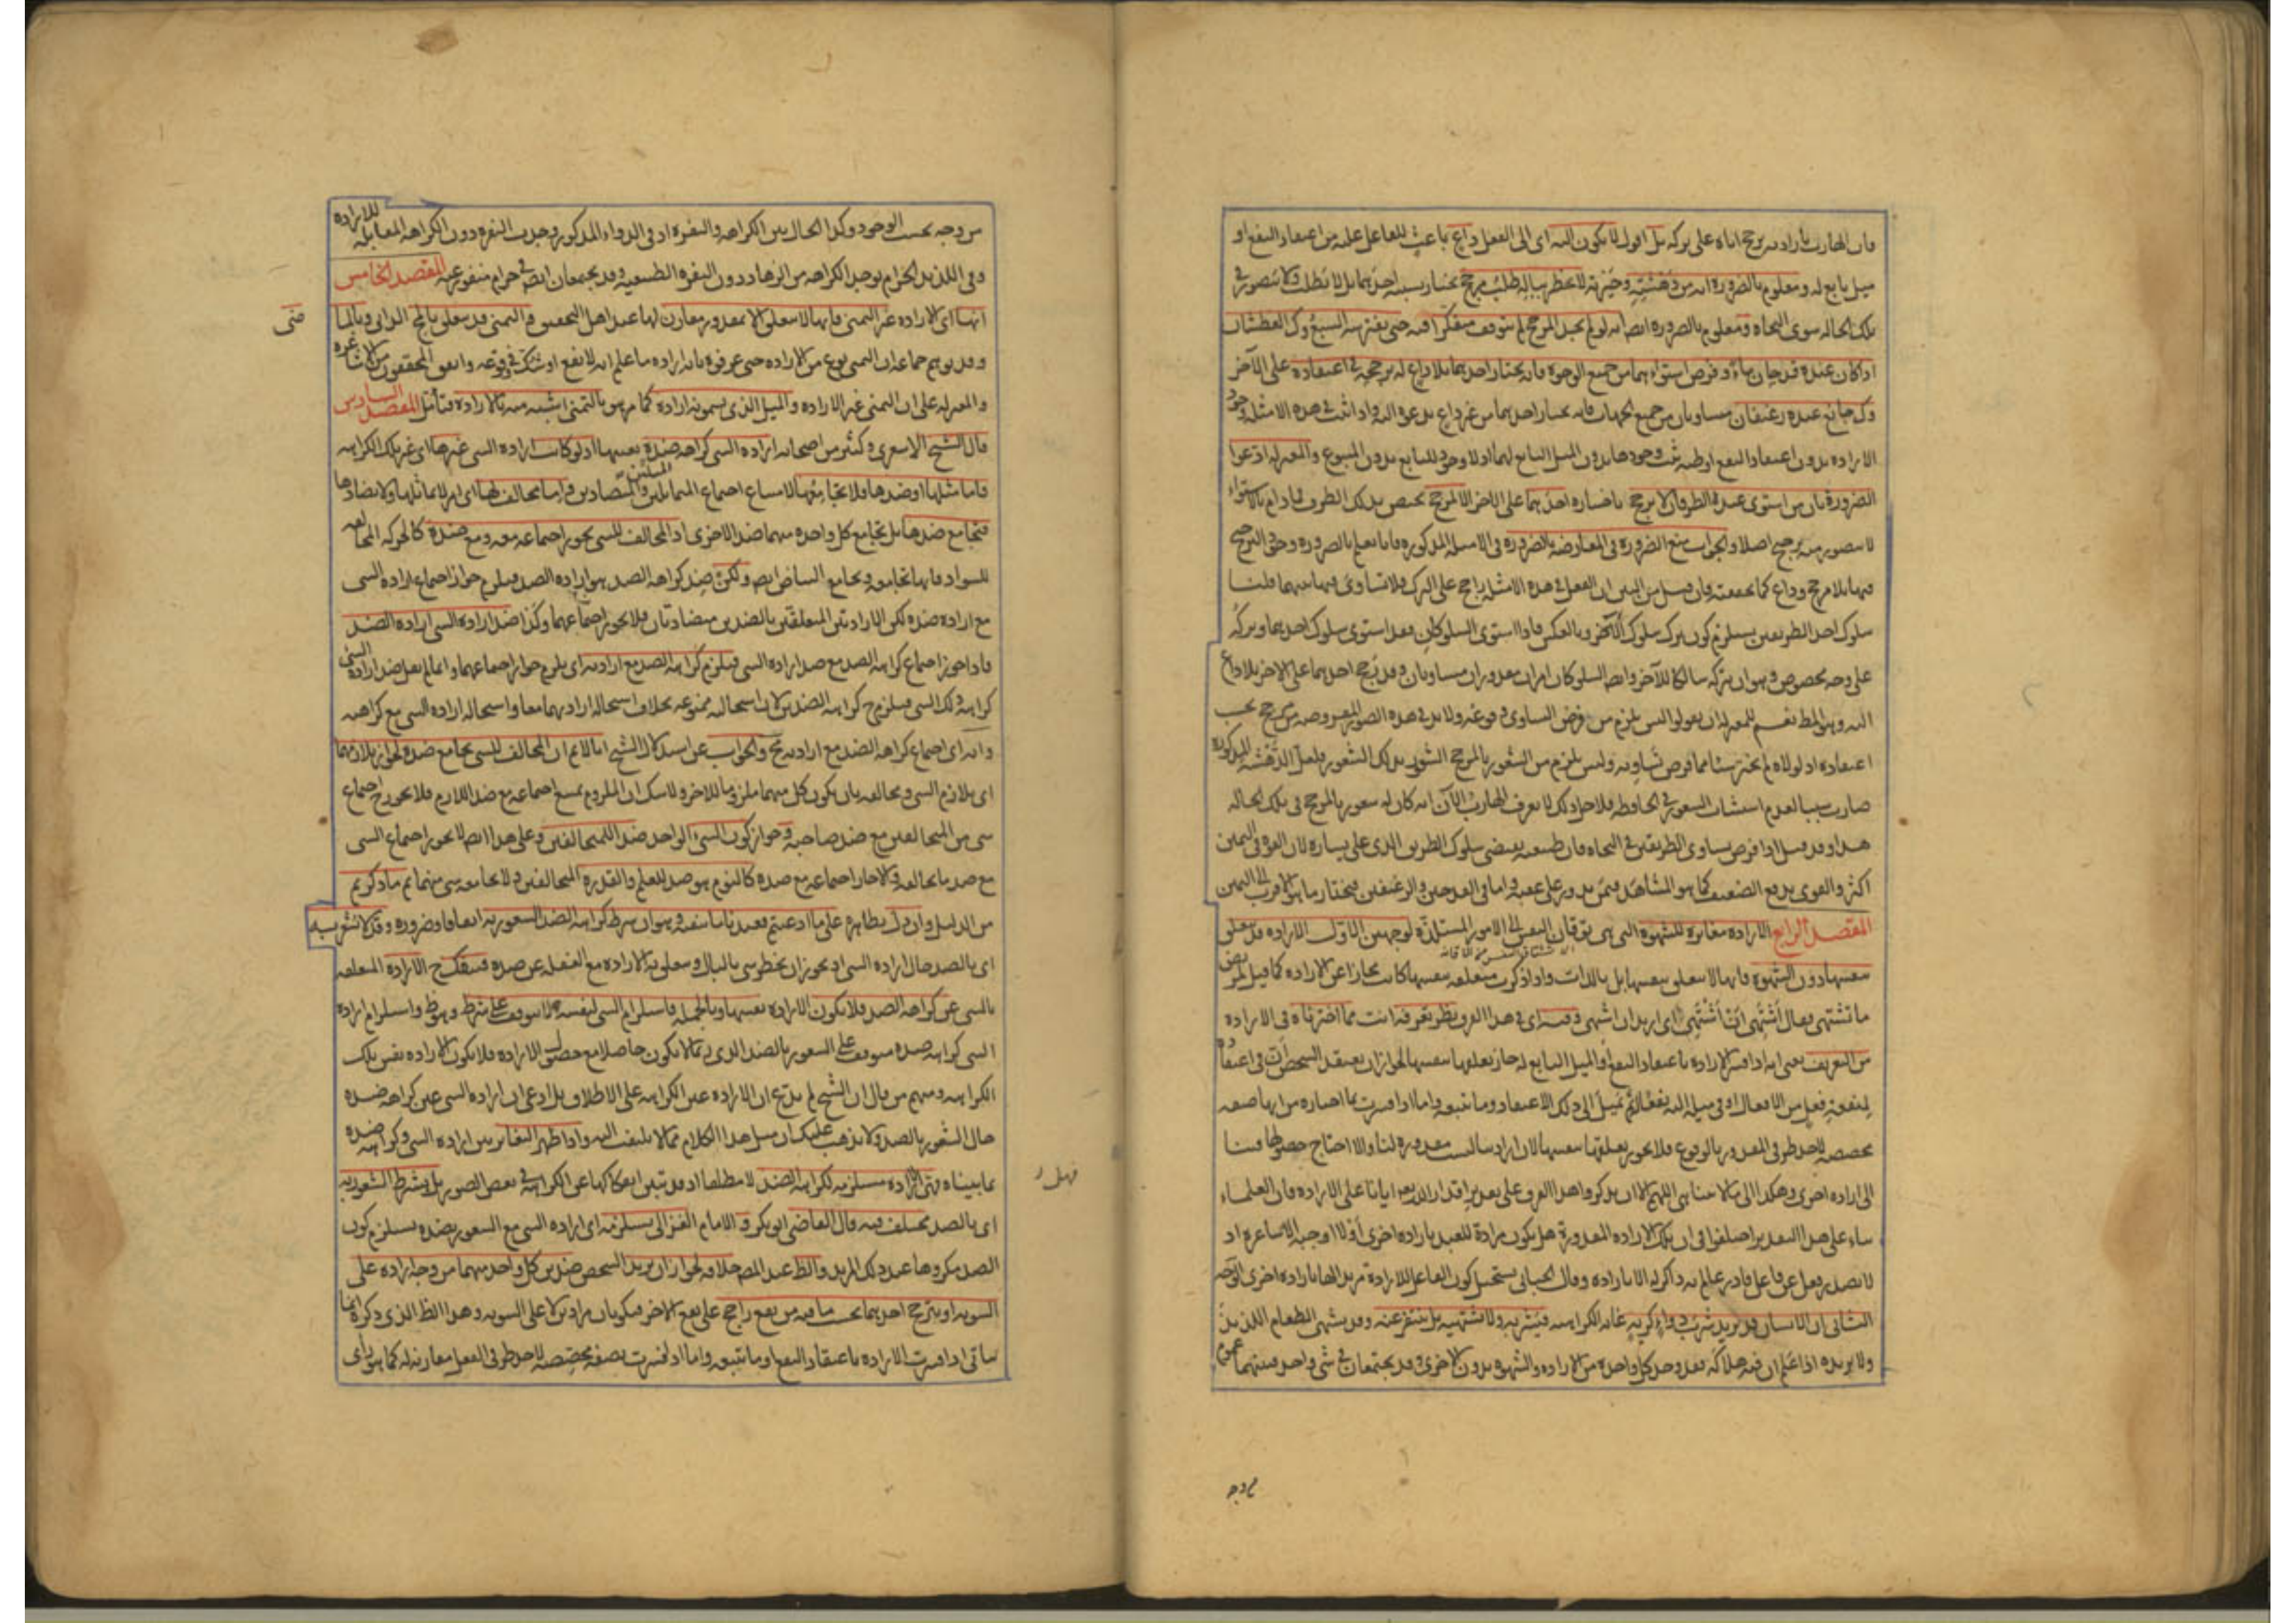 فان الهارب بارادته يرجح اياه على تركه بل اقول لا يكون اليه اى الى الفعل داع باعث للفاعل عليه من اعتقاد النفع او
ميل تابع له ومعلوم بالضرورة انه من دهشته وحيرته لا يخطر بباله طلب مرجح يختار بسببه احدهما بل لا يطلب ولا يتصور فى
تلك الحالة سوى النجاة ومعلوم بالضرورة ايضا انه لو لم يجد المرجح لم يتوقف متفكرا فيه حتى يفترسه السبع وكذا العطشان
اذا كان عنده قدحان ماءً وفرض استواءهما من جميع الوجوه فانه يختار احدهما بلا داع له يرجحه فى اعتقاده على الآخر
وكذا جائع عنده رغيفان متساويان من جميع الجهات فانه يختار احدهما من غير داع يدعوه اليه واذا ثبت فى هذه الامثلة وجود
الارادة بدون اعتقاد النفع او ظنه ثبت وجودها بدون الميل التابع لهما اذ لا وجود للتابع بدون المتبوع والمعتزلة ادعوا
الضرورة بان من استوى عنده الطرفان لا يرجح باختياره احدهما على الآخر الا لمرجح يختص بذلك الطرف فما دام بالاستواء
لا يتصور منه ترجيح اصلا والجواب منع الضرورة فى المعارضة بالضرورة فى الامثلة المذكورة فانا نعلم بالضرورة وجود الترجيح
فيها بلا مرجح وداع كما تحققته فان قيل من البين ان الفعل فى هذه الامثلة راجح على الترك فلا تساوى فيها بينهما قلنا
سلوك احد الطريقين يستلزم كون ترك سلوك الآخر وبالعكس فاذا استوى السلوكان فقد استوى سلوك احدهما وتركه
على وجه مخصوص وهو ان يتركه سالكا للآخر وايضا السلوكان امران مقدوران متساويان وقد رجح احدهما على الآخر بلا داع
اليه وهو المط نعم للمعتزلة ان يقولوا ليس يلزم من فرض التساوى وقوعه ولا بد فى هذه الصورة المفروضة من مرجح بحسب
اعتقاده اذ لولاه لم يختر شيئا مما فرض تساويه وليس يلزم من الشعور بالمرجح الشعور بذلك الشعور فلعل الدهشة المذكورة
صارت سببا لعدم استثبات الشعور فى الحافظة فلاجل ذلك لا يعرف الهارب الآن انه كان له شعور بالمرجح فى تلك الحالة
هذا وقد قيل اذا فرض تساوى الطريقين فى النجاة فان طبيعته يقتضى سلوك الطريق الذى على يساره لان القوة فى اليمين
اكثر والقوى يدفع الضعيف كما هو المشاهد فيمن يدور على عقبه واما فى القدحين والرغيفين فيختار ما هو الاقرب الى اليمين
المقصد الرابع الارادة مغايرة للشهوة التى هى توقان النفس الى الامور المستلذة لوجهين الاول الارادة قد تتعلق
بنفسها دون الشهوة فانها لا تتعلق بنفسها بل باللذات واذا ذكرت متعلقة بنفسها كانت مجازا عن الارادة كما قيل لمريض
ما تشتهى فقال اشتهى ان اشتهى اى اريد ان اشتهى وفيه اى فى هذا الفرق نظر تعرفه انت مما اخترناه فى الارادة
من التعريف يعنى انه اذا فسر الارادة باعتقاد النفع او الميل التابع له جاز تعلقها بنفسها لجواز ان يعتقد الشخص ان فى اعتقاده
لمنفعة فعل من الافعال او فى ميله اليه نفعا ثم يميل الى ذلك الاعتقاد وما تتبعه واما اذا فسرت بما اختاره من انها صفة
مخصصة لاحد طرفى المقدور بالوقوع فلا يجوز تعلقها بنفسها لان ارادتنا ليست مقدورة لنا والا احتاج حصولها فينا
الى ارادة اخرى وهكذا الى ما لا يتناهى اللهم الا ان يذكروا هذا الفرق على تقدير اقدار الله تعه ايانا على الارادة فان العلماء
بناء على هذا التقدير اختلفوا فى ان تلك الارادة المقدورة هل يكون مرادة للعبد بارادة اخرى او لا اوجبه الاشاعرة اذ
لا يصدر فعل عن فاعل قادر عالم به ذاكر له الا بارادة وقال الجبائى يستحيل كون الفاعل للارادة مريدا لها بارادة اخرى الوجه
الثانى ان الانسان قد يريد شرب دواء كريه غاية الكراهية فيشربه ولا يشتهيه بل ينفر عنه وقد يشتهى الطعام اللذيذ
ولا يريده اذا علم ان فيه هلاكه فقد وجد كل واحدة من الارادة والشهوة بدون الاخرى وقد يجتمعان فى شئ واحد فبينهما عموم
من وجه
من وجه بحسب الوجود وكذا الحال بين الكراهة والنفرة اذ فى الدواء المذكور وجدت النفرة دون الكراهة المقابلة للارادة
وفى اللذيذ الحرام يوجد الكراهة من الزهاد دون النفرة الطبيعية وقد يجتمعان ايضا فى حرام منفور عنه المقصد الخامس
انها اى الارادة غير التمنى فانها لا تتعلق الا بمقدور مقارن لها عند اهل التحقيق والتمنى قد يتعلق بالمح الذاتى وبالماضى
وقد توهم جماعة ان التمنى نوع من الارادة حتى عرفوه بانه ارادة ما علم انه لا يقع او شك فى وقوعه واتفق المحققون من الاشاعرة
والمعتزلة على ان التمنى غير الارادة والميل الذى يسمونه ارادة كما مر هو بالتمنى اشبه منه بالارادة فتأمل المقصد السادس
قال الشيخ الاشعرى وكثير من اصحابه ارادة الشئ كراهة ضده بعينها اذ لو كانت ارادة الشئ غيرها اى غير تلك الكراهة
فاما مثلها او ضدها فلا تجامعها لامتناع اجتماع المتماثلين المتضادين واما مخالف لها اى امر لا يماثلها ولا يضادها
فتجامع ضدها بل تجامع كل واحدة منهما ضد الاخرى اذ المخالف للشئ يجوز اجتماعه معه ومع ضده كالحركة المخالفة
للسواد فانها تجامعه وتجامع البياض ايضا ولكن ضد كراهة الضد هو ارادة الضد فيلزم جواز اجتماع ارادة الشئ
مع ارادة ضده لكن الارادتين المتعلقتين بالضدين متضادتان فلا يجوز اجتماعهما وكذا ضد ارادة الشئ ارادة الضد
فاذا جوز اجتماع كراهة الضد مع ضد ارادة الشئ فيلزم كراهة الضد مع ارادته اى يلزم جواز اجتماعهما وانما لم يقل ضد ارادة الشئ
كراهة ذلك الشئ فيلزم ح كراهة الضدين لان استحالته ممنوعة بخلاف استحالة ارادتهما معا واستحالة ارادة الشئ مع كراهته
وانه اى اجتماع كراهة الضد مع ارادته مح والجواب عن استدلال الشيخ انا لا نم ان المخالف للشئ يجامع ضده لجواز تلازمهما
اى تلازم الشئ ومخالفه بان يكون كل منهما ملزوما للآخر ولا شك ان الملزوم يمتنع اجتماعه مع ضد اللازم فلا يجوز ح اجتماع
شئ من المتخالفين مع ضد صاحبه وجواز كون الشئ الواحد ضد للمتخالفين وعلى هذا ايضا لا يجوز اجتماع الشئ
مع ضد ما يخالفه والا جاز اجتماعه مع ضده كالنوم هو ضد للعلم والقدرة المتخالفين ولا يجامعه شئ منهما ثم ما ذكرتم
من الدليل وان دل بظاهره على ما ادعيتم فعندنا ما ينفيه وهو ان شرط كراهة الضد الشعور به اتفاقا وضرورة وقد لا يشعر به
اى بالضد حال ارادة الشئ اذ يجوز ان يخطر شئ بالبال ويتعلق به الارادة مع الغفلة عن ضده فينفك ح الارادة المتعلقة
بالشئ عن كراهة الضد فلا يكون الارادة نفسها وبالجملة فاستلزام الشئ لنفسه لا يتوقف على شرط وهو ظ واستلزام ارادة
الشئ كراهة ضده متوقف على الشعور بالضد الذى ربما لا يكون حاصلا مع حصول الارادة فلا يكون الارادة نفس تلك
الكراهة ومنهم من قال ان الشيخ لم يدع ان الارادة عين الكراهة على الاطلاق بل ادعى ان ارادة الشئ عين كراهة ضده
حال الشعور بالضد ولا يذهب عليك ان مثل هذا الكلام مما لا يلتفت اليه واذا ظهر التغاير بين ارادة الشئ وكراهة ضده
بما بيناه فهل الارادة مستلزمة لكراهة الضد لا مطلقا اذ قد تبين انفكاكها عن الكراهة فى بعض الصور بل بشرط الشعور به
اى بالضد مختلف فيه قال القاضى ابو بكر والامام الغزالى يستلزمه اى ارادة الشئ مع الشعور بضده يستلزم كون
الضد مكروها عند ذلك المريد والظ عند المص خلافه لجواز ان يريد الشخص ضدين كل واحد منهما من وجه ارادة على
السوية او يترجح احدهما بحسب ما فيه من نفع راجح على نفع الآخر فيكونان مرادين لا على السوية وهذا الظ الذى ذكره انما
يتأتى اذا فسرت الارادة باعتقاد النفع او ما يتبعه واما اذا فسرت بصفة مخصصة لاحد طرفى الفعل مقارنة له كما هو رأى